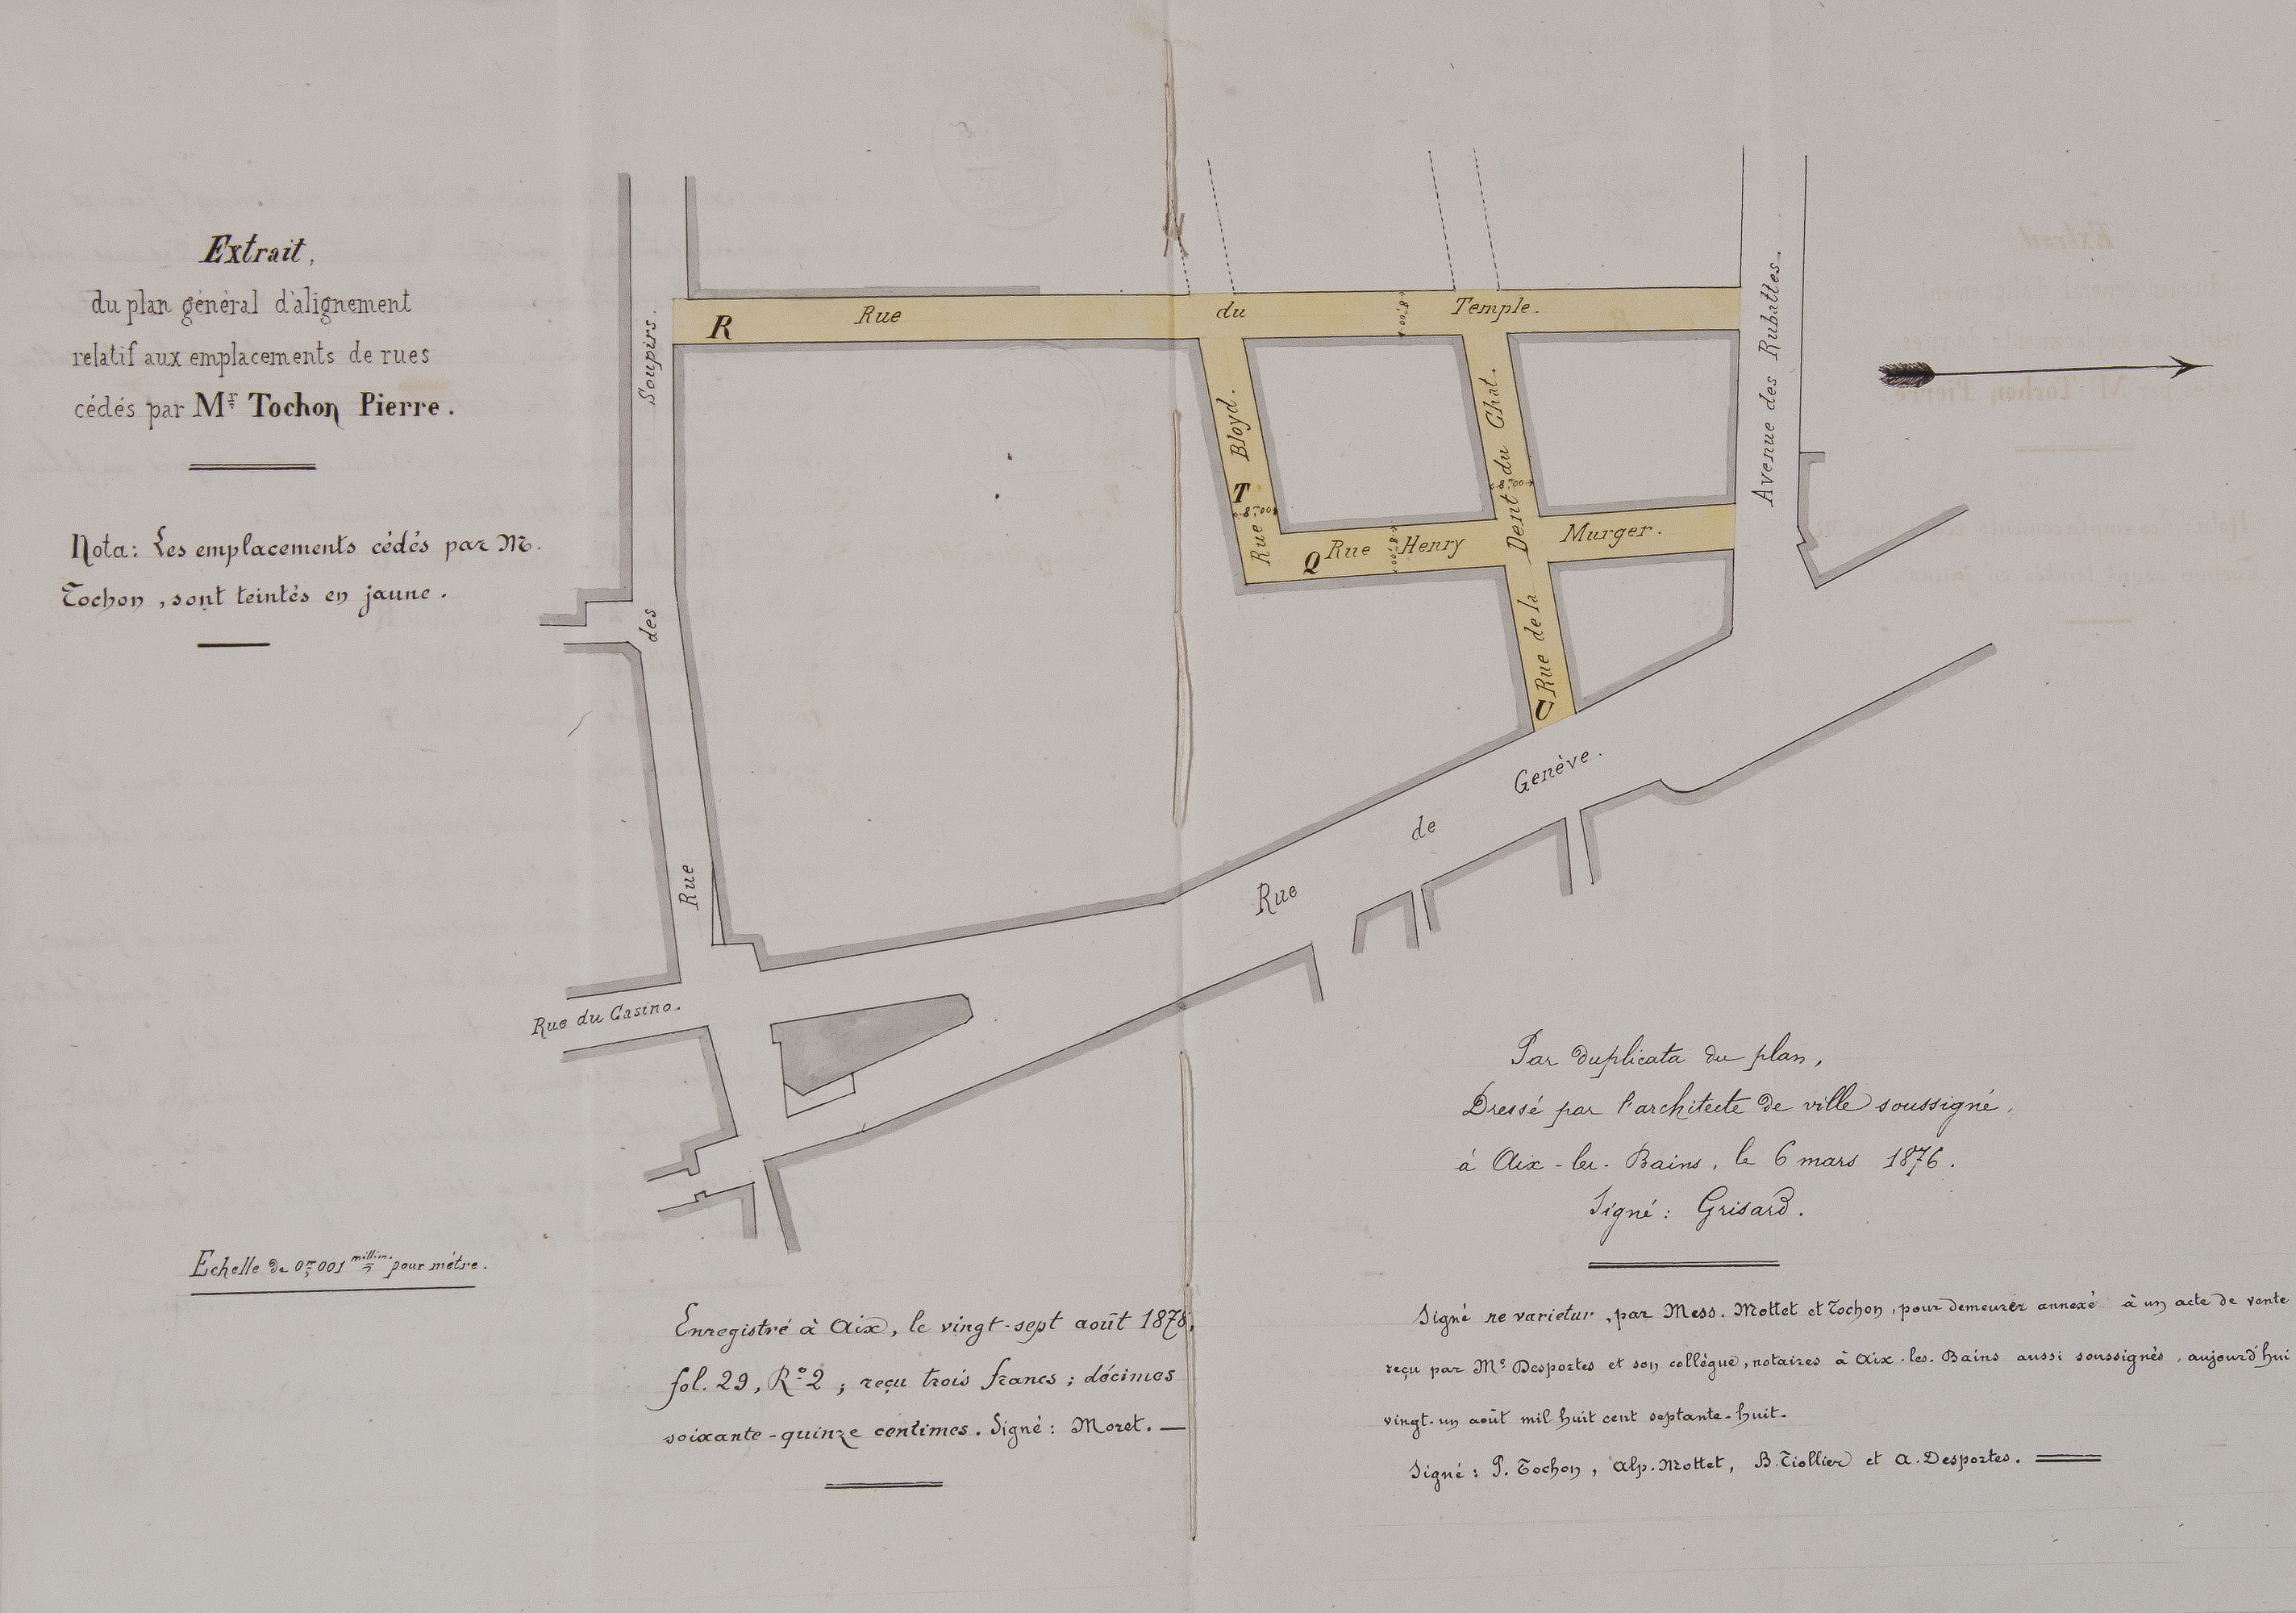 Extrait,
du plan général d'alignement
relatif aux emplacements de rues
cédés par Mr Tochon Pierre.
Nota: Les emplacements cédés par M.
Tochon, sont teintés en jaune.
Rue des Soupirs.
R
Rue du Temple.
8m,00
T
Rue Bloyd.
8m,00
Q
Rue Henry Murger.
8m,00
U
Rue de la Dent du Chat.
8m,00
Avenue des Rubattes.
Rue de Genève.
Rue du Casino.
Echelle de 0m,001 millim. pour mètre.
Par duplicata du plan,
Dressé par l'architecte de ville soussigné,
à Aix-les-Bains, le 6 mars 1876.
Signé: Grisard.
Enregistré à Aix, le vingt-sept août 1878,
fol. 29, Ro 2; reçu trois francs; décimes
soixante-quinze centimes. Signé: Moret. —
Signé ne varietur, par Mess. Mottet et Tochon, pour demeurer annexé à un acte de vente
reçu par Me Desportes et son collègue, notaires à Aix-les-Bains aussi soussignés, aujourd'hui
vingt-un août mil huit cent septante-huit.
Signé: P. Tochon, Alp. Mottet, B. Tiollier et A. Desportes.